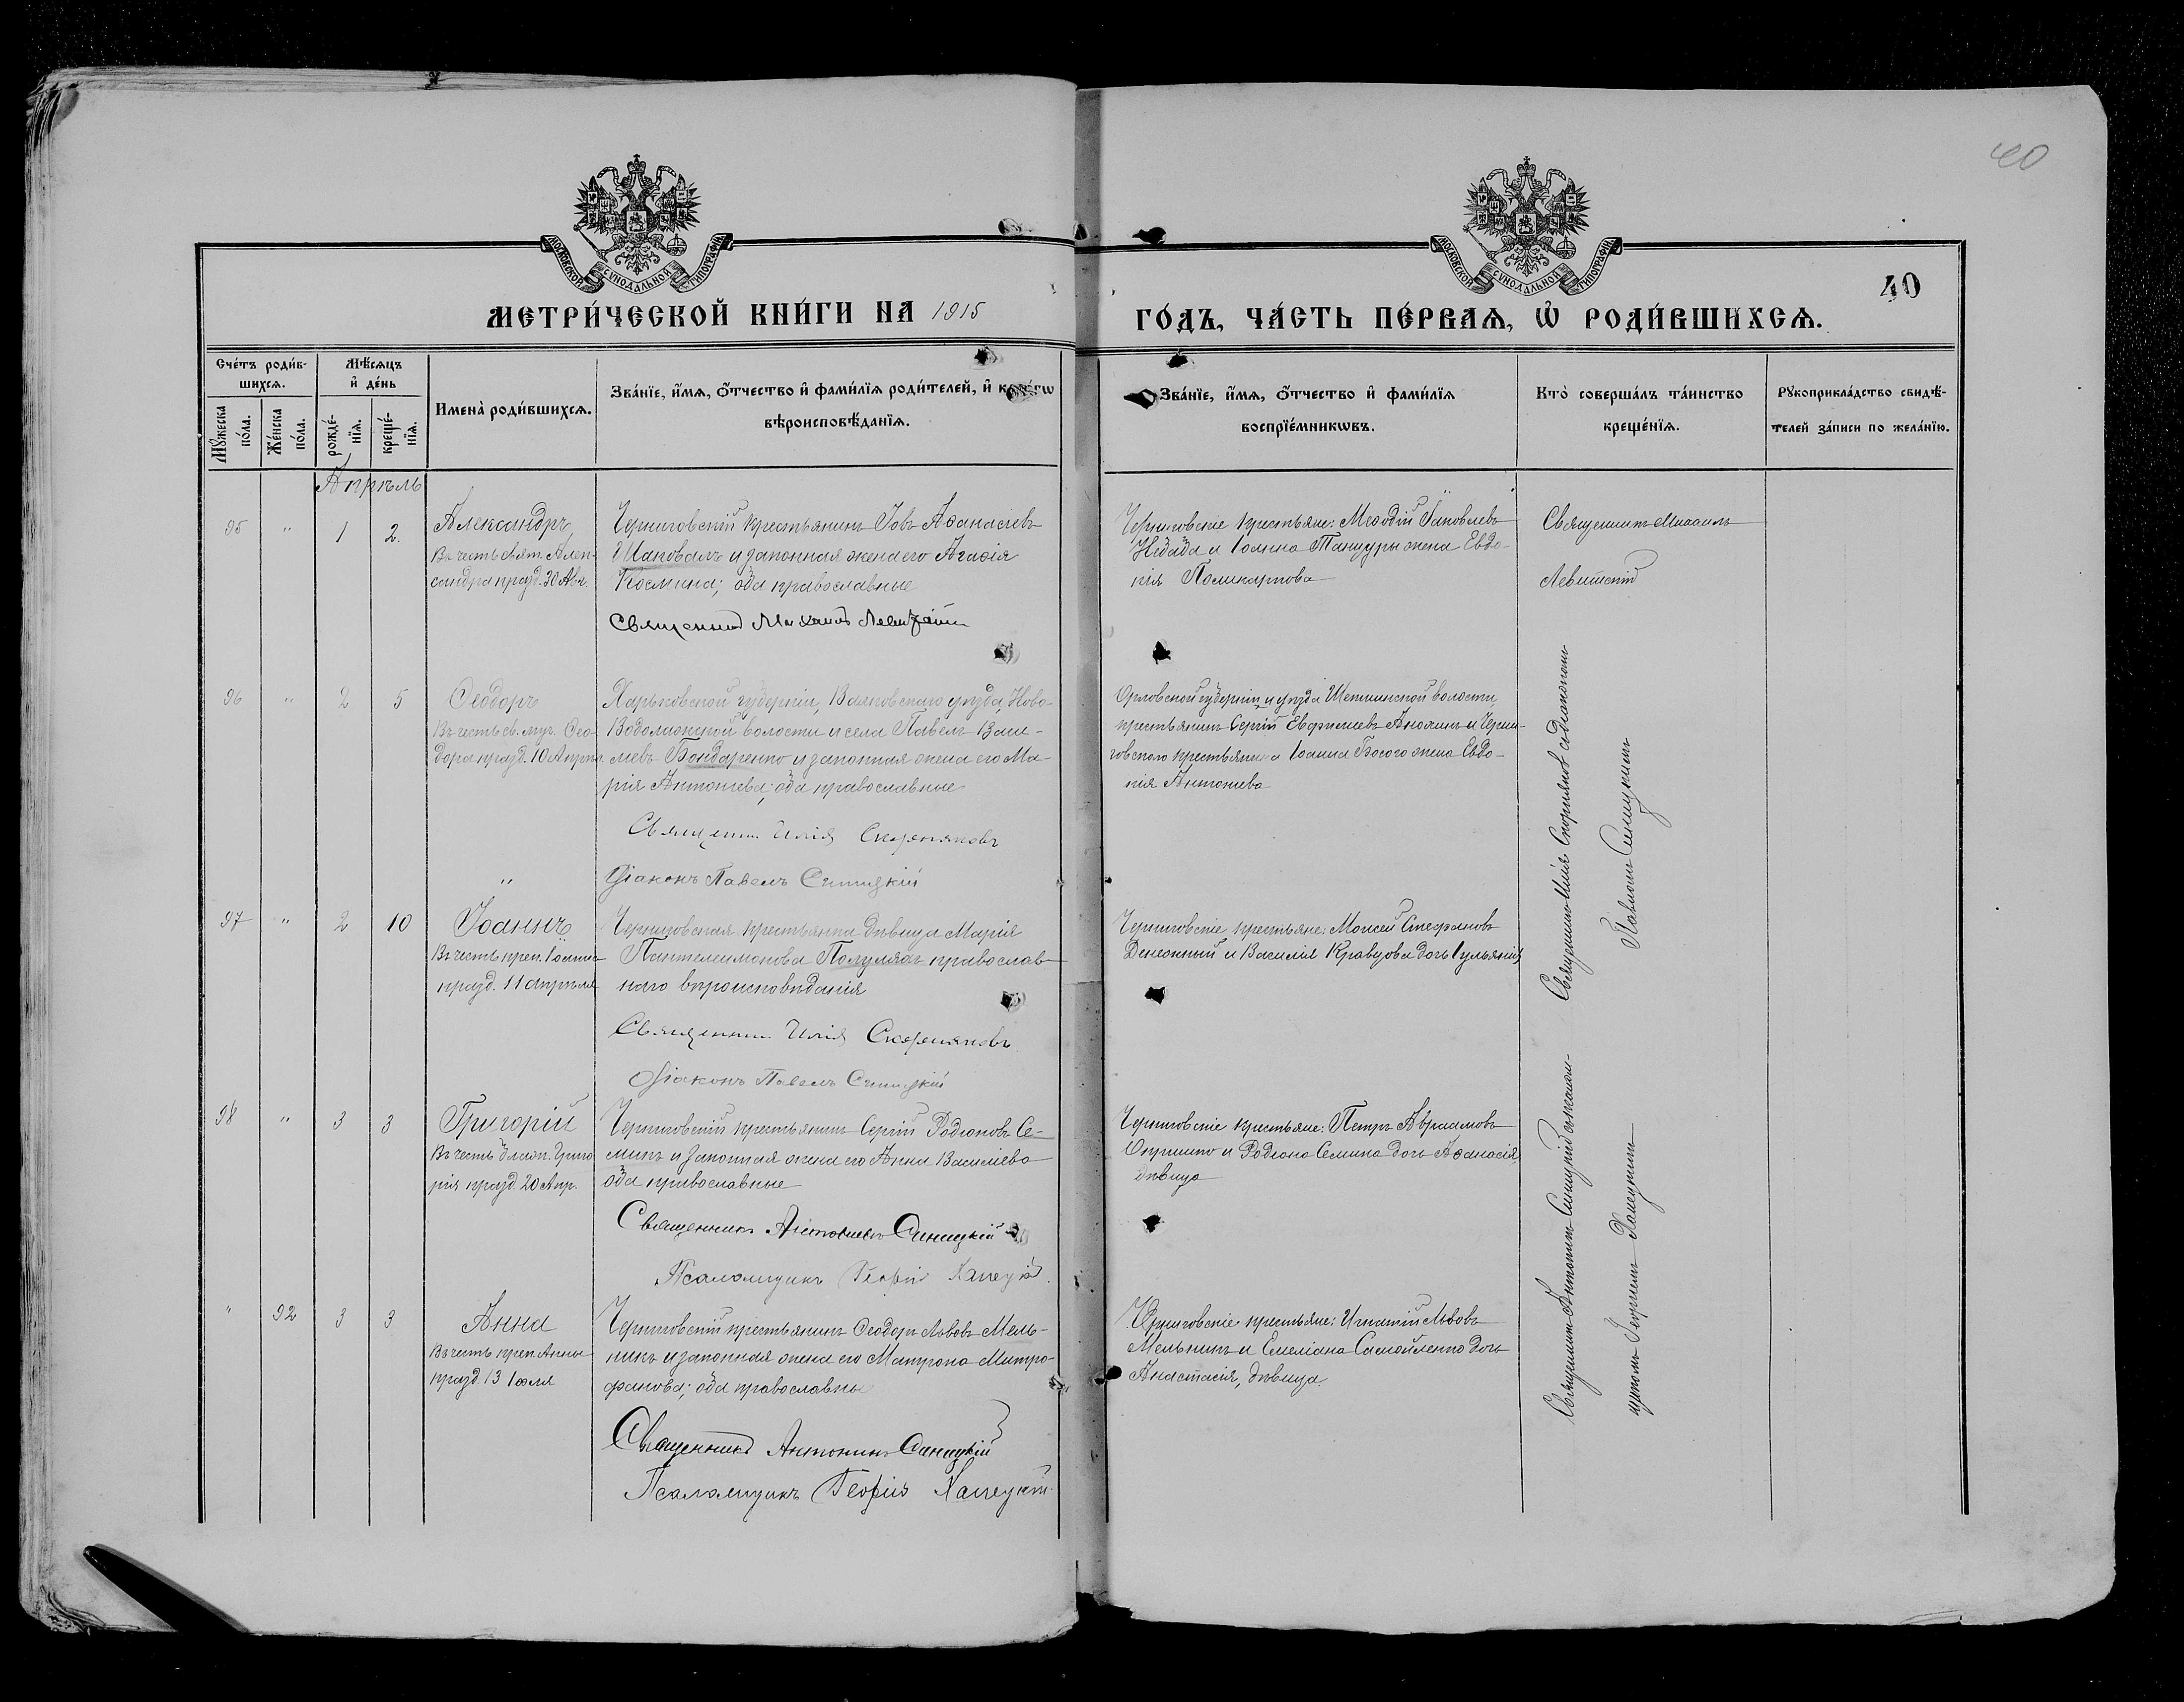 40
МОСКОВСКОЙ СѴНОДАЛЬНОЙ ТИПОГРАФІИ
МОСКОВСКОЙ СѴНОДАЛЬНОЙ ТИПОГРАФІИ
40
МЕТРИ́ЧЕСКОЙ КНИ́ГИ НА 1915
ГО́ДЪ, ЧА́СТЬ ПЕ́РВАѦ, Ѽ РОДИ́ВШИХСѦ.
Сче́тъ роди́в-
шихсѧ.
Мѣ́сѧцъ
и҆ де́нь
Мꙋ́жеска
по́ла.
Же́нска
по́ла.
рожде́-
нїѧ.
креще́-
нїѧ.
Имена̀ роди́вшихсѧ.
Зва́нїе, и҆́мѧ, ѻ҆́тчество и҆ фами́лїѧ роди́телей, и҆ како́гѡ
вѣроисповѣ́данїѧ.
Зва́нїе, и҆́мѧ, ѻ҆́тчество и҆ фами́лїѧ
воспрїе́мникѡвъ.
Кто̀ соверша́лъ та́инство
креще́нїѧ.
Рꙋкоприкла́дство свидѣ́-
телей за́писи по жела́нїю.
Апрѣль
95 " 1 2.
Александръ
Въ честь благ. Алек-
сандра празд. 30 Авг.
Черниговскій крестьянинъ Іовъ Аѳанасіевъ
Шаповалъ и законная жена его Агаѳія
Космина; оба православные
Священникъ Михаилъ Левитскій
Черниговскіе крестьяне: Меѳодій Іаковлевъ
и Іоанна жена Евдо-
кія Поликарпова
Священникъ Михаилъ
Левитскій
96 " 2 5
Ѳеодоръ
Въ честь св. муч. Ѳео-
дора празд. 10 Апрѣл.
Харьковской губерніи, Валковскаго уѣзда, Ново-
Водолажской волости и села Павелъ Васи-
ліевъ Бондаренко и законная жена его Ма-
рія Антоніева; оба православные
Священникъ Илія Скорняковъ
Діаконъ Павелъ Синицкій
Орловской губерніи и уѣзда волости,
крестьянинъ Сергій Евфиміевъ и Черни-
говскаго крестьянина Іоанна Босого жена Евдо-
кія Антоніева
Священникъ Илія Скорняковъ съ діакономъ
Павломъ Синицкимъ
97 " 2 10
"
Іоаннъ
Въ честь преп. Іоанна
празд. 11 апрѣля
Черниговская крестьянка дѣвица Марія
Пантелеимонова Полуляхъ православ-
наго вѣроисповѣданія
Священникъ Илія Скорняковъ
Діаконъ Павелъ Синицкій
Черниговскіе крестьяне: Моисей Стефановъ
и Василія Кравцова дочь Іуліанія
98 " 3 3
Григорій
Въ честь Григо
рія празд. 20 Апр.
Черниговскій крестьянинъ Сергій Родіоновъ Се-
минъ и законная жена его Анна Василіева
оба православные
Священникъ Антонинъ Синицкій
Псаломщикъ Георгій
Черниговскіе крестьяне: Петръ Авраамовъ
и Родіона Семина дочь Аѳанасія,
дѣвица
Священникъ Антонинъ Синицкій съ псалом-
щикомъ Георгіемъ
" 92 3 3
Анна
Въ честь преп. Анны
празд. 13 Іюля
Черниговскій крестьянинъ Ѳеодоръ Львовъ Мель-
никъ и законная жена его Матрона Митро-
фанова; оба православные
Священникъ Антонинъ Синицкій
Псаломщикъ Георгій
Черниговскіе крестьяне: Игнатій Львовъ
Мельникъ и Емеліана Самойленко дочь
Анастасія, дѣвица